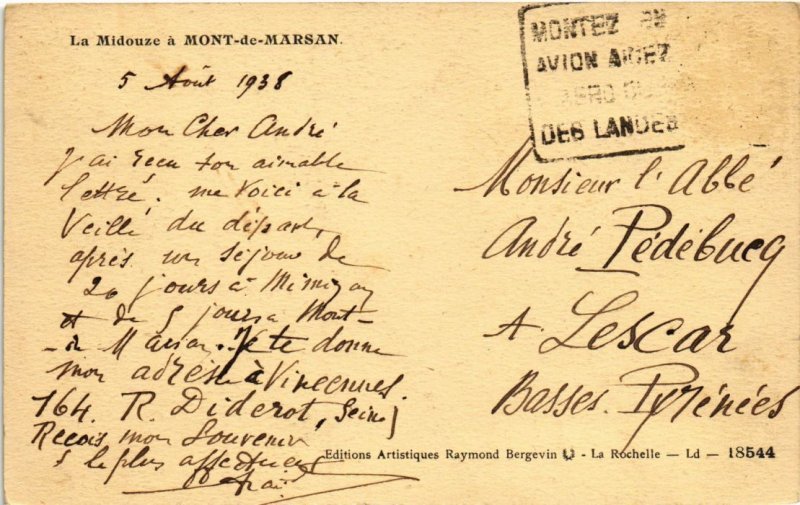 La Midouze à MONT-de-MARSAN.
5 Août 1938
Mon Cher André
J'ai recu ton aimable
lettré. me Voici à la
Veillé du départ,
après un séjour de
20 jours à Mimizan
et de 5 jours à Mont-
Marsan. Je te donne
mon adrèsse à Vincennes.
164. R. Diderot, (Seine)
Recois mon Souvenir
le plus affectueux
MONTEZ EN
AVION AIDEZ
AERO
DES LANDES
Monsieur l'Abbé
André Pédébucq
A Lescar
Basses. Pyrénées
Editions Artistiques Raymond Bergevin - La Rochelle — Ld — 18544